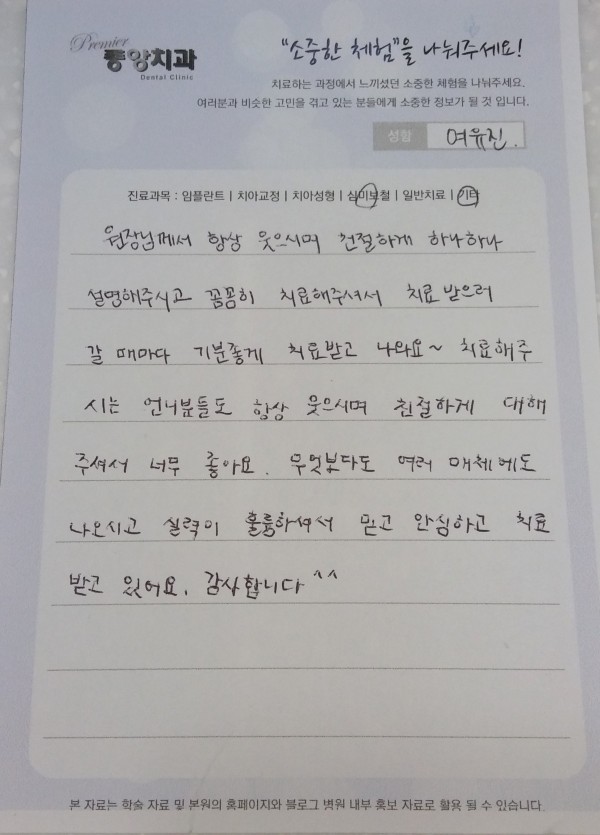 Premier
중앙치과
Dental Clinic
"소중한 체험"을 나눠주세요!
치료하는 과정에서 느끼셨던 소중한 체험을 나눠주세요.
여러분과 비슷한 고민을 겪고 있는 분들에게 소중한 정보가 될 것 입니다.
성함 여유진.
진료과목 : 임플란트 | 치아교정 | 치아성형 | 심미보철 | 일반치료 | 기타
원장님께서 항상 웃으시며 친절하게 하나하나
설명해주시고 꼼꼼히 치료해주셔서 치료 받으러
갈 때마다 기분좋게 치료받고 나와요~ 치료해주
시는 언니분들도 항상 웃으시며 친절하게 대해
주셔서 너무 좋아요. 무엇보다도 여러 매체에도
나오시고 실력이 훌륭하셔서 믿고 안심하고 치료
받고 있어요. 감사합니다 ^^
본 자료는 학술 자료 및 본원의 홈페이지와 블로그 병원 내부 홍보 자료로 활용 될 수 있습니다.